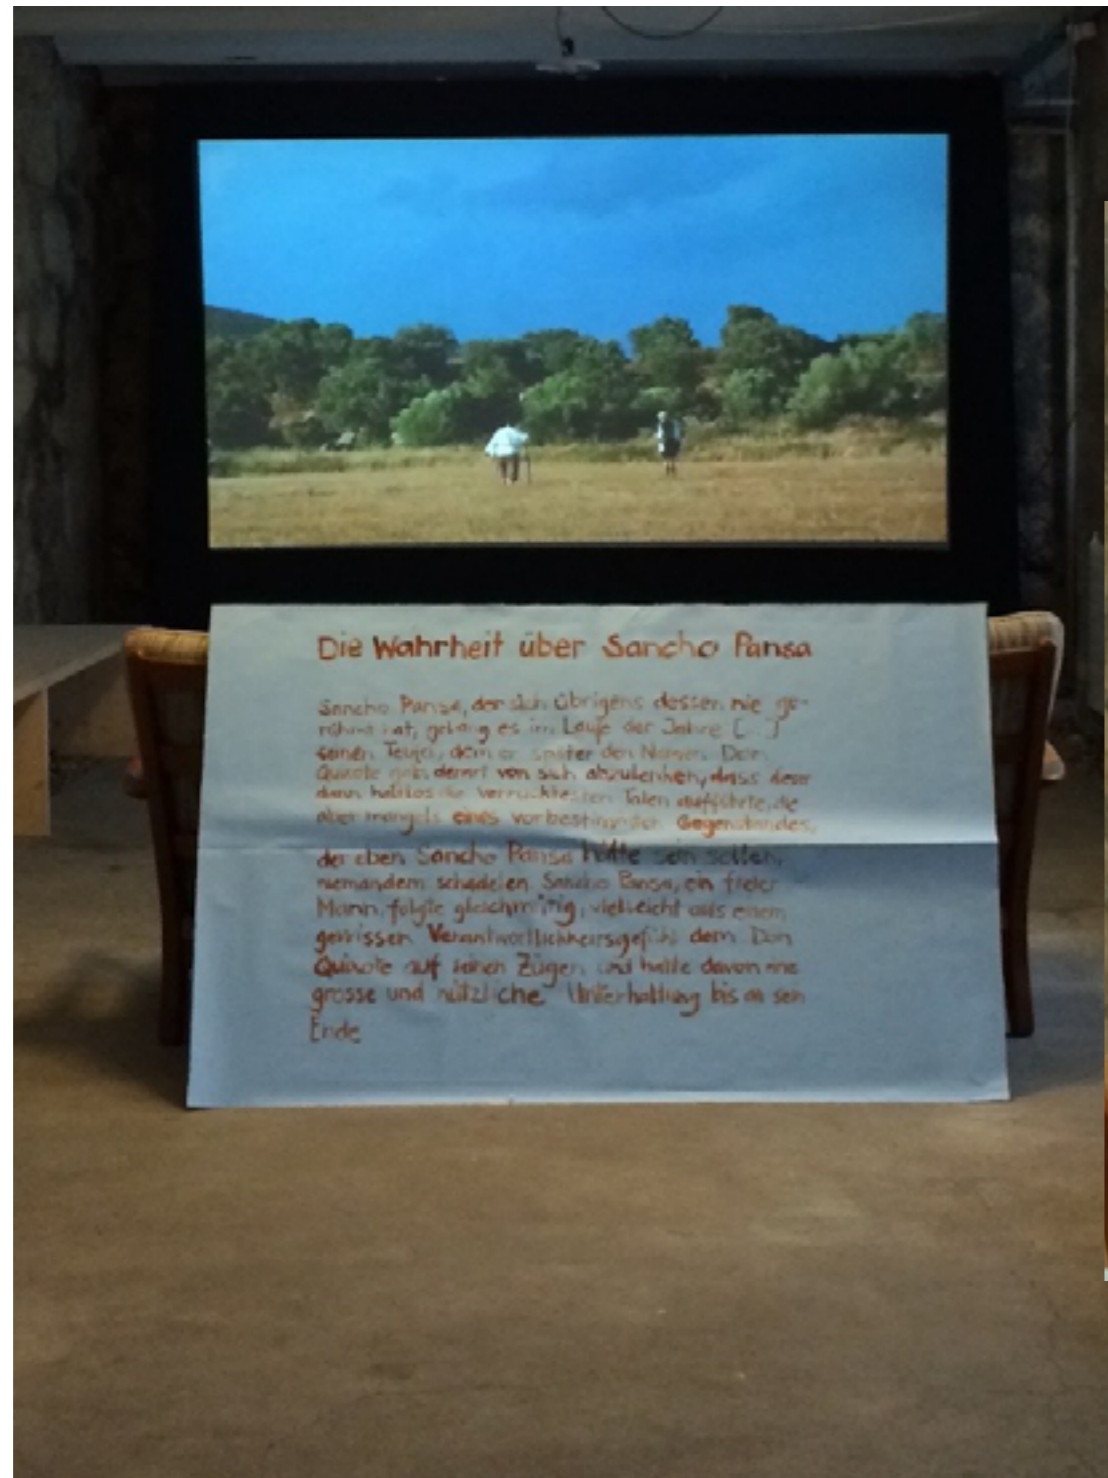 Die Wahrheit über Sancho Pansa
Sancho Pansa, der sich übrigens dessen nie ge-
rühmt hat, gelang es im Laufe der Jahre [...]
seinen Teufel, dem er später den Namen Don
Quixote gab, derart von sich abzulenken, dass dieser
dann haltlos die verrücktesten Taten aufführte, die
aber mangels eines vorbestimmten Gegenstandes,
der eben Sancho Pansa hätte sein sollen,
niemandem schadeten. Sancho Pansa, ein freier
Mann, folgte gleichmütig, vielleicht aus einem
gewissen Verantwortlichkeitsgefühl dem Don
Quixote auf seinen Zügen und hatte davon eine
grosse und nützliche Unterhaltung bis an sein
Ende